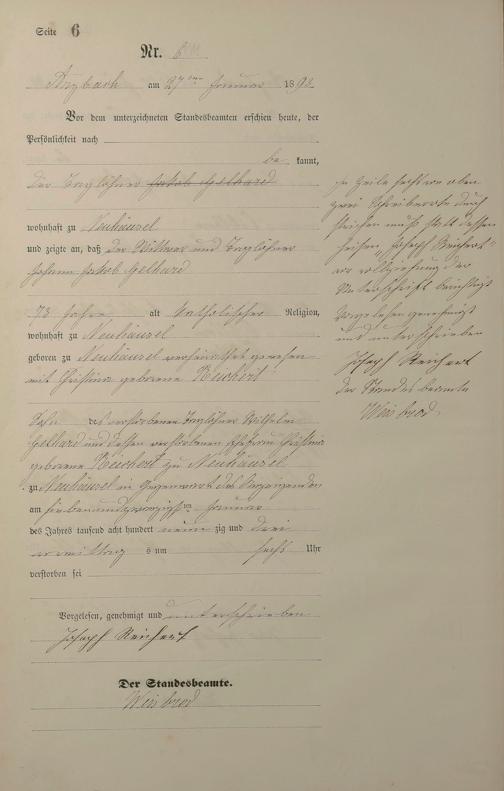 Seite 6
Nr. 6
Arzbach am 27ten Januar 1893
Vor dem unterzeichneten Standesbeamten erschien heute, der
Persönlichkeit nach
be kannt,
der Taglöhner Jakob Gelhard
wohnhaft zu Neuhäusel
und zeigte an, daß der Wittwer und Taglöhner
Johann Jakob Gelhard
73 Jahre alt katholischer Religion,
wohnhaft zu Neuhäusel
geboren zu Neuhäusel verheirathet gewesen
mit Christina geborene Reichert
Sohn des verstorbenen Taglöhner Wilhelm
Gelhard und dessen verstorbenen Ehefrau Christina
geborene Reichert zu Neuhäusel
zu Neuhäusel in Gegenwart des Anzeigenden
am siebenundzwanzigsten Januar
des Jahres tausend acht hundert neun zig und drei
vormittags um sechs Uhr
verstorben sei
Vorgelesen, genehmigt und unterschrieben
Joseph Reichert
Der Standesbeamte.
Weisbrod
In Zeile sechs von oben
zwei Schreibworte durch
strichen muß statt dessen
heißen "Joseph Reichert"
vor vollziehung der
Unterschrift berichtigt
Vorgelesen genehmigt
und unterschrieben
Joseph Reichert
Der Standesbeamte
Weisbrod